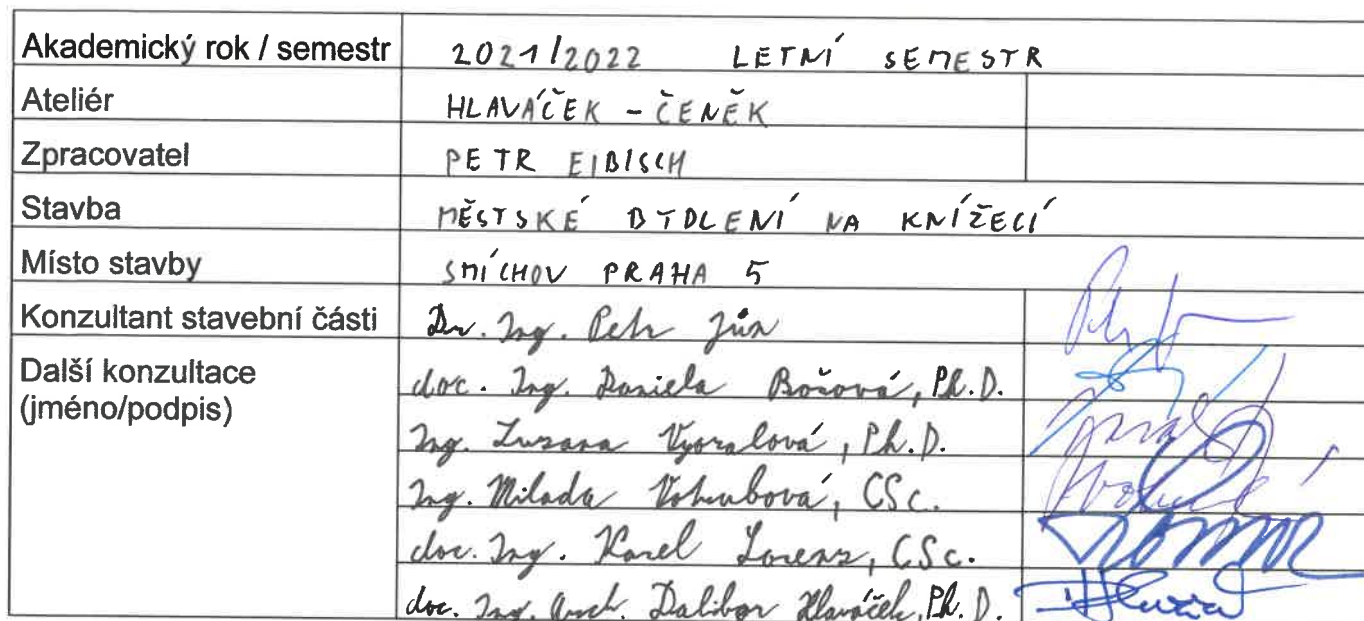 Akademický rok / semestr 2021/2022 LETNÍ SEMESTR
Ateliér HLAVÁČEK - ČENĚK
Zpracovatel PETR EIBISCH
Stavba MĚSTSKÉ BYDLENÍ NA KNÍŽECÍ
Místo stavby SMÍCHOV PRAHA 5
Konzultant stavební části Dr. Ing. Petr Jůn
Další konzultace doc. Ing. Daniela Bošová, Ph.D.
(jméno/podpis)
Ing. Zuzana Vyoralová, Ph.D.
Ing. Milada Votrubová, CSc.
doc. Ing. Karel Lorenz, CSc.
doc. Ing. arch. Dalibor Hlaváček, Ph.D.